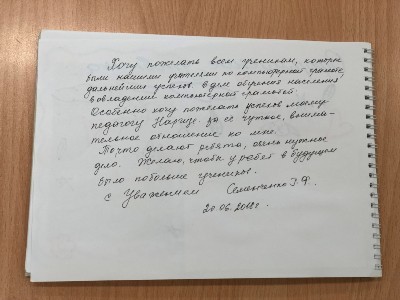 Хочу пожелать всем ученикам, которые
были нашими учителями по компьютерной грамоте,
дальнейших успехов. в деле обучения населения
в овладении компьютерной грамотой.
Особенно хочу пожелать успехов моему
педагогу Наргиз за её чуткое, внима-
тельное отношение ко мне.
То что делают ребята, очень нужное
дело. Желаю, чтобы у ребят в будущем
было побольше учеников.
с Уважением Семенченко
20.06.2018г.